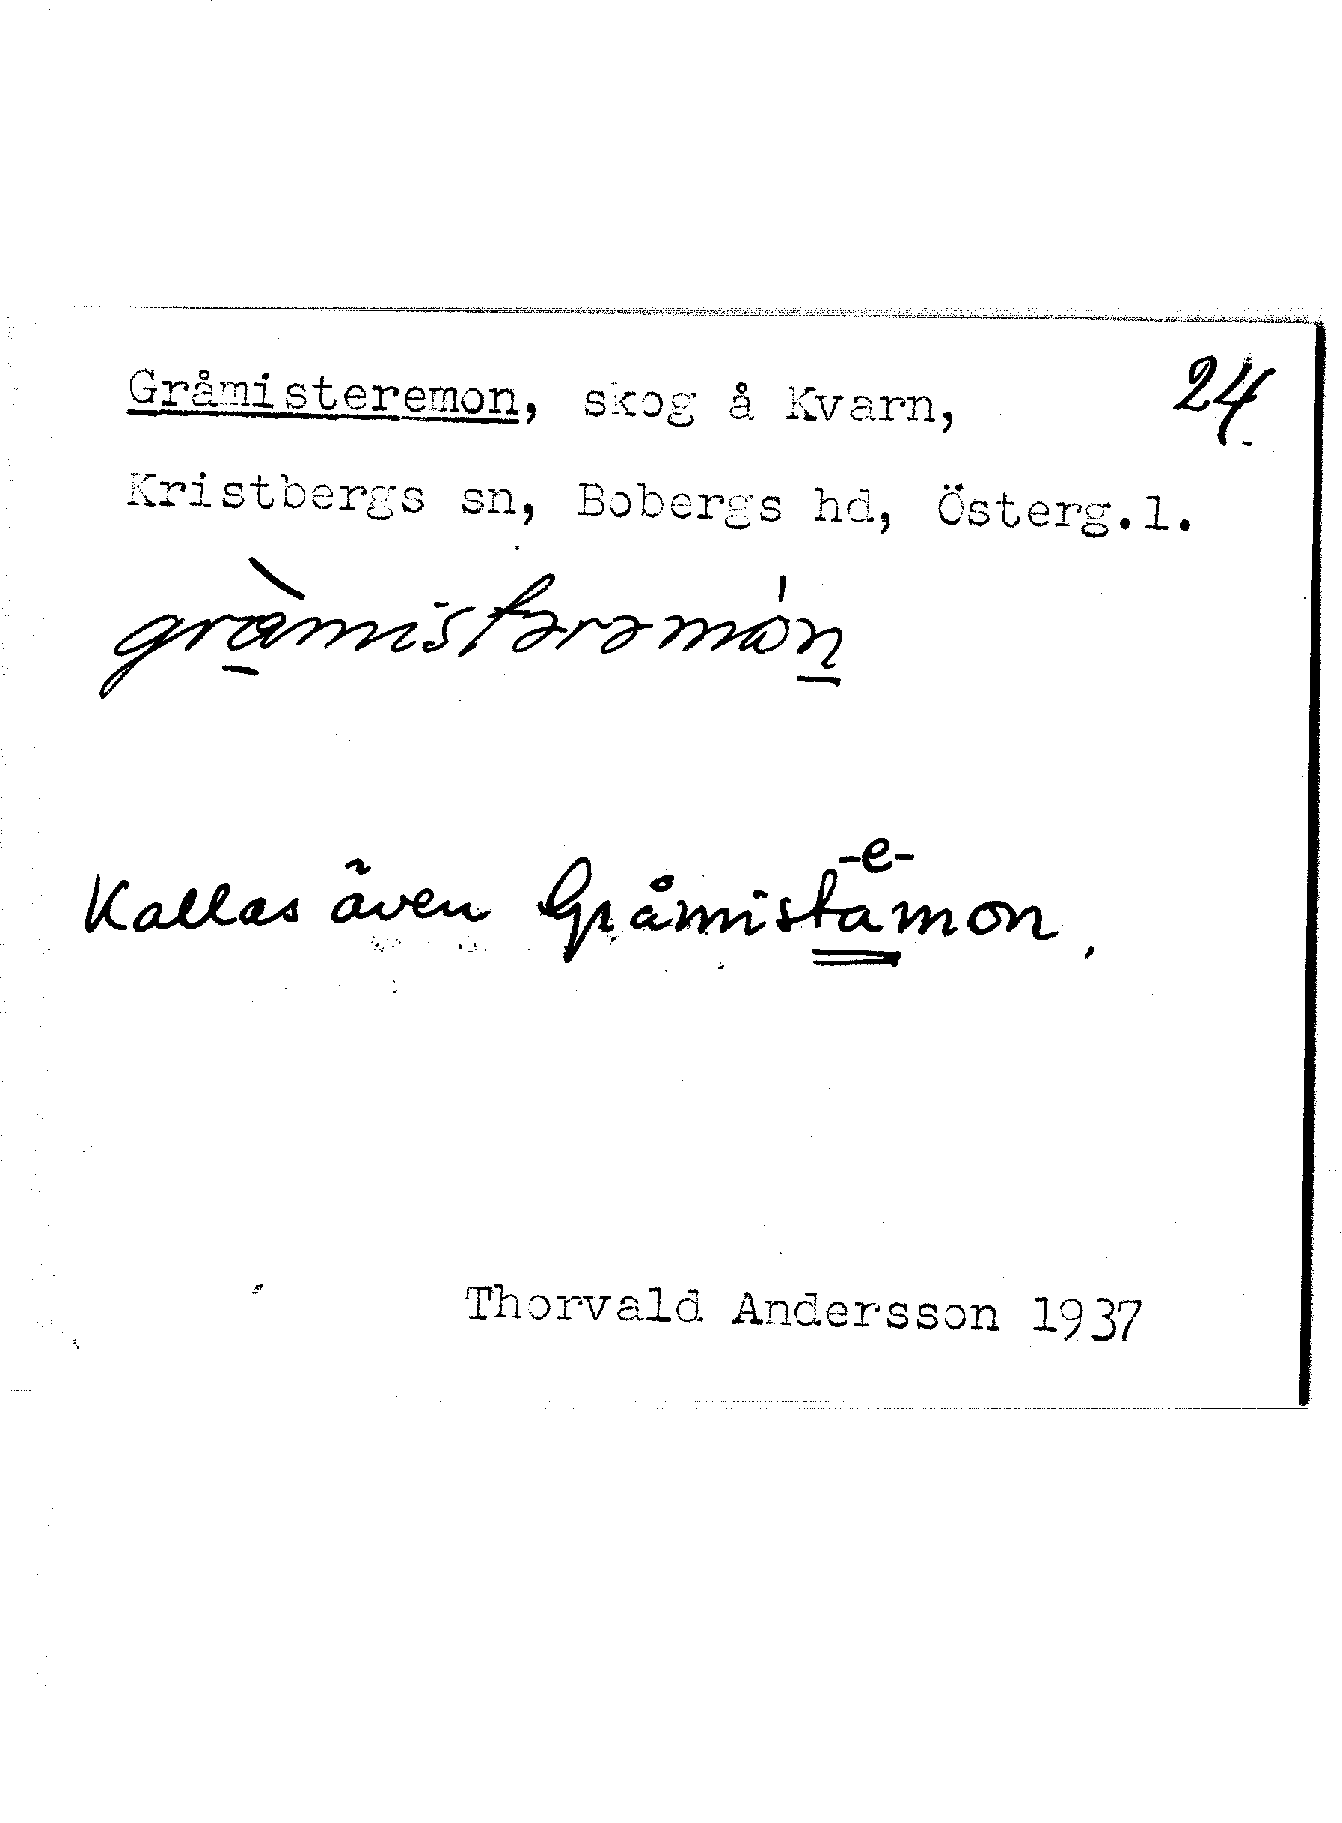 Gråmisteremon, skog å Kvarn, 24
Kristbergs sn, Bobergs hd, Österg.l.
gràmistərəmón
-e-
Kallas även Gråmistamon.
Thorvald Andersson 1937